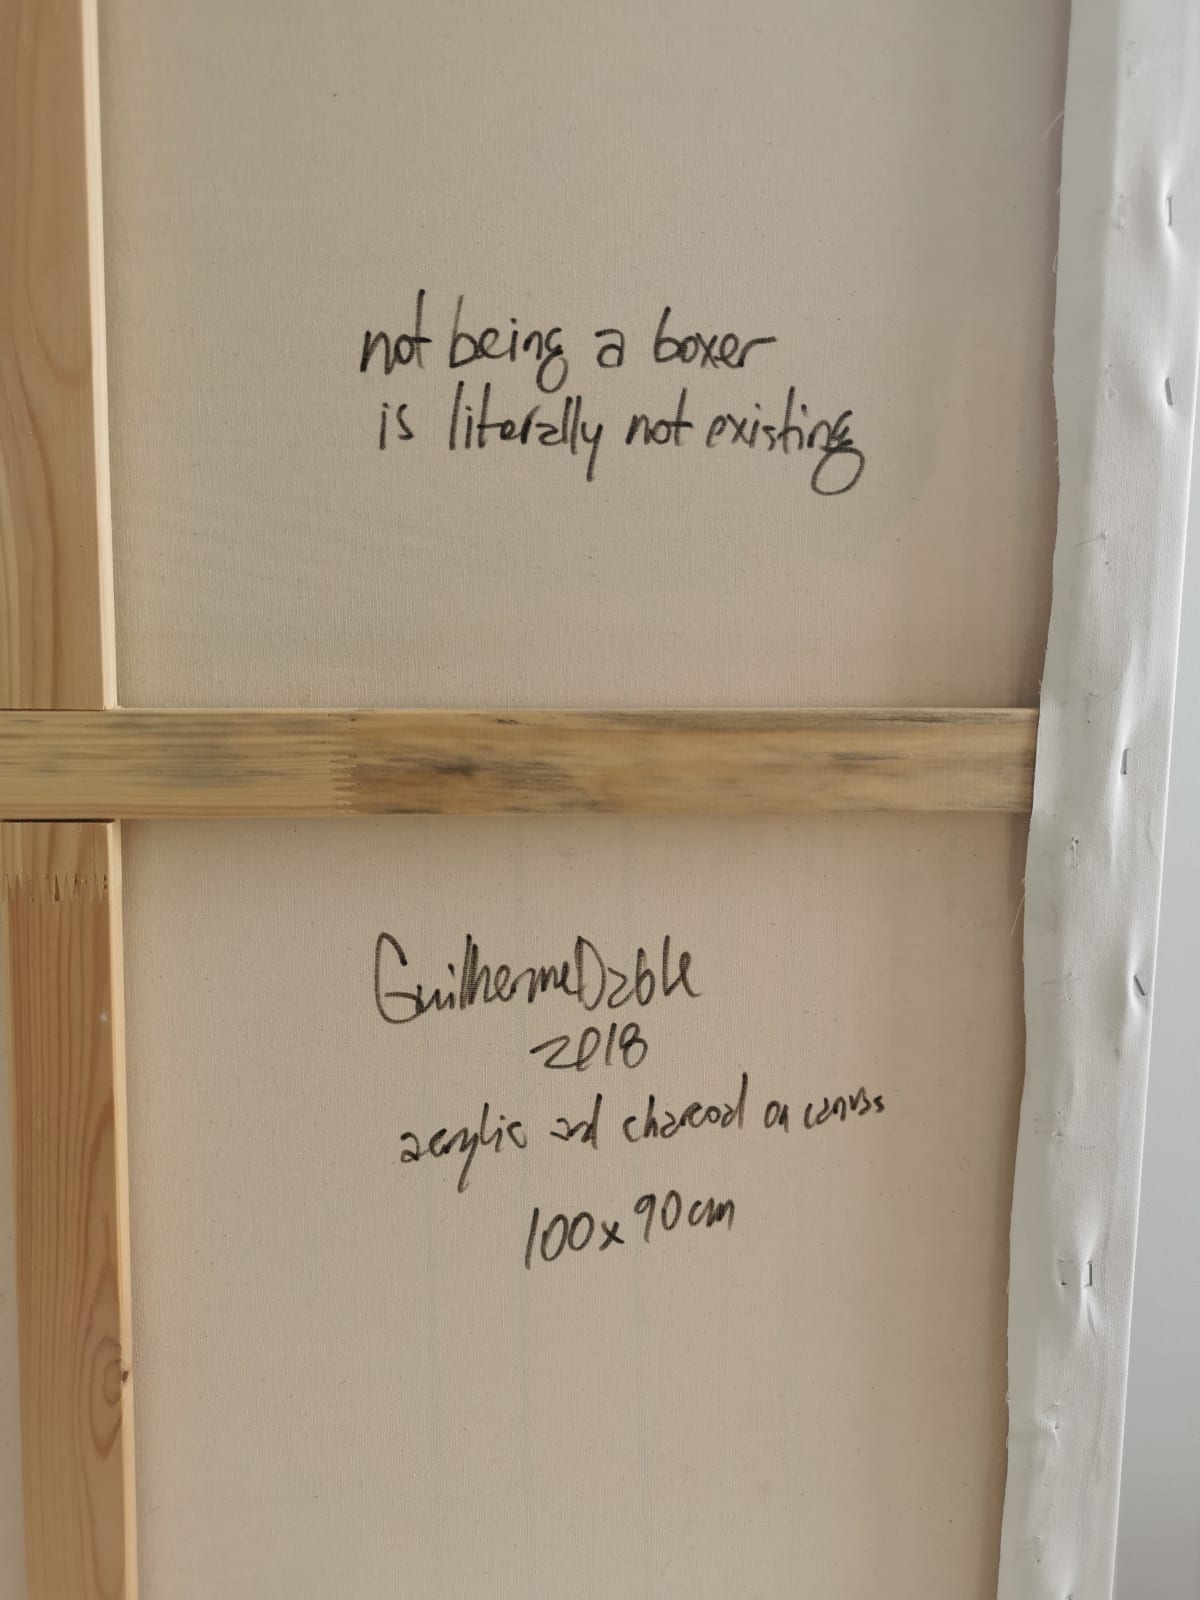 not being a boxer
is literally not existing
Guilherme Dable
2018
acrylic and charcoal on canvas
100x90cm